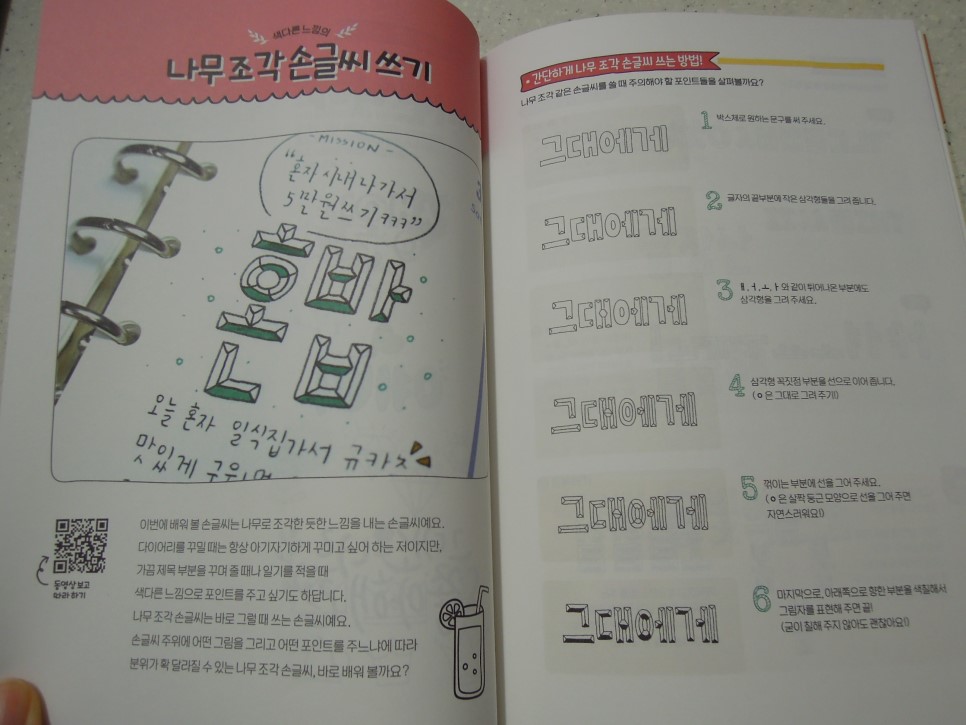 색다른 느낌의
나무 조각 손글씨 쓰기
- MISSION -
"혼자 시내 나가서
5만원 쓰기 ㅋㅋㅋ"
흥바
눕
오늘 혼자 일식집가서 규카츠
맛있게 구워먹
동영상 보고
따라 하기
이번에 배워 볼 손글씨는 나무로 조각한 듯한 느낌을 내는 손글씨예요.
다이어리를 꾸밀 때는 항상 아기자기하게 꾸미고 싶어 하는 저이지만,
가끔 제목 부분을 꾸며 줄 때나 일기를 적을 때
색다른 느낌으로 포인트를 주고 싶기도 하답니다.
나무 조각 손글씨는 바로 그럴 때 쓰는 손글씨예요.
손글씨 주위에 어떤 그림을 그리고 어떤 포인트를 주느냐에 따라
분위기가 확 달라질 수 있는 나무 조각 손글씨, 바로 배워 볼까요?
• 간단하게 나무 조각 손글씨 쓰는 방법!
나무 조각 같은 손글씨를 쓸 때 주의해야 할 포인트들을 살펴볼까요?
그대에게
1 박스체로 원하는 문구를 써 주세요.
그대에게
2 글자의 끝부분에 작은 삼각형들을 그려 줍니다.
그대에게
3 ㅐ, ㅓ, ㅗ, ㅏ 와 같이 튀어나온 부분에도
삼각형을 그려 주세요.
그대에게
4 삼각형 꼭짓점 부분을 선으로 이어 줍니다.
(ㅇ은 그대로 그려 주기!)
그대에게
5 꺾이는 부분에 선을 그어 주세요.
(ㅇ은 살짝 둥근 모양으로 선을 그어 주면
자연스러워요!)
그대에게
6 마지막으로, 아래쪽으로 향한 부분을 색칠해서
그림자를 표현해 주면 끝!
(굳이 칠해 주지 않아도 괜찮아요!)